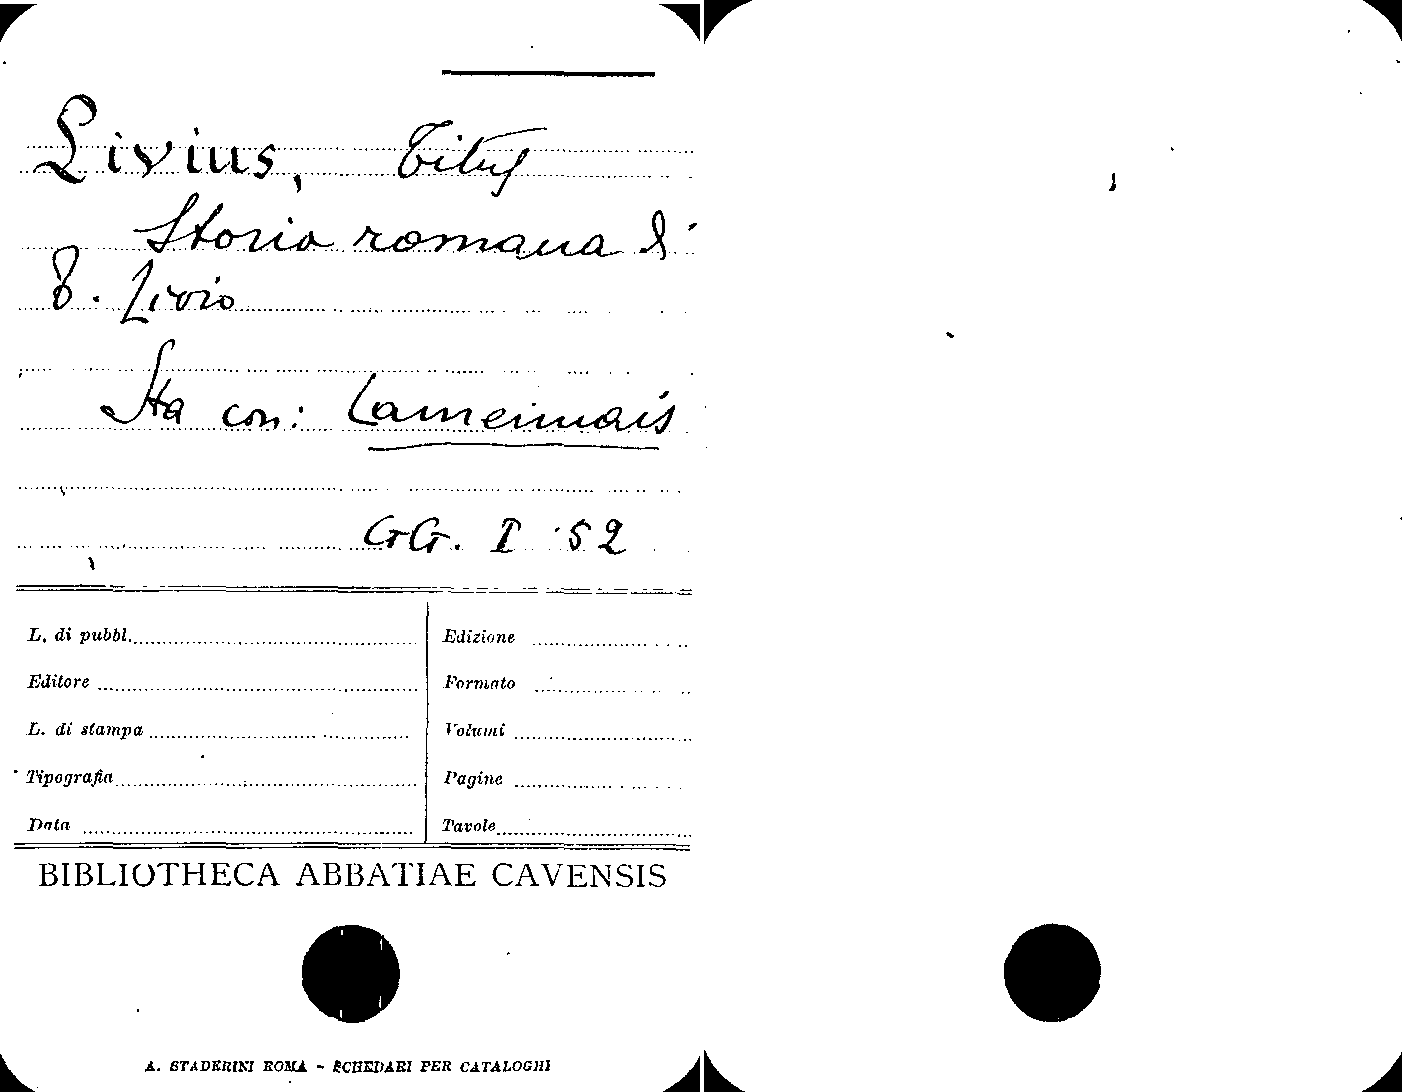 Livius, Titus
Storia romana di
T. Livio
Sta con: Lamennais
GG. I 52
L. di pubbl.
Edizione
Editore
Formato
L. di stampa
Volumi
Tipografia
Pagine
Data
Tavole
BIBLIOTHECA ABBATIAE CAVENSIS
A. STADERINI ROMA - SCHEDARI PER CATALOGHI